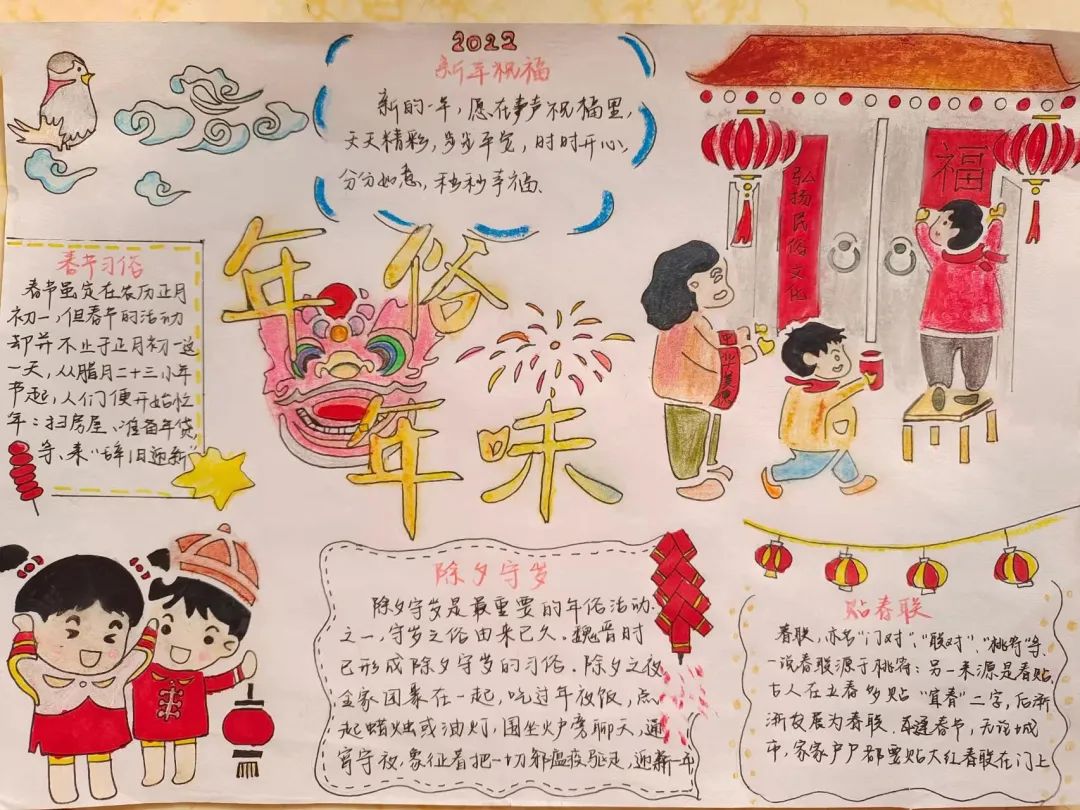 2022
新年祝福
新的一年，愿在声声祝福里，
天天精彩，岁岁平安，时时开心，
分分如意，秒秒幸福、
年俗
年味
春节习俗
春节虽定在农历正月
初一，但春节的活动
却并不止于正月初一这
一天，从腊月二十三小年
节起，人们便开始忙
年：扫房屋、准备年货
等、来“辞旧迎新”
弘扬民俗文化
福
中华美德
除夕守岁
除夕守岁是最重要的年俗活动
之一，守岁之俗由来已久。魏晋时
已形成除夕守岁的习俗．除夕之夜
全家团聚在一起，吃过年夜饭，点
起蜡烛或油灯，围坐炉旁聊天，通
宵守夜，象征着把一切邪瘟疫驱走，迎新一年
贴春联
春联，亦名“门对”、“联对”、“桃符”等、
一说春联源于桃符；另一来源是春贴、
古人在立春多贴“宜春”二字，后渐
渐发展为春联．每逢春节，无论城
市，家家户户都要贴大红春联在门上